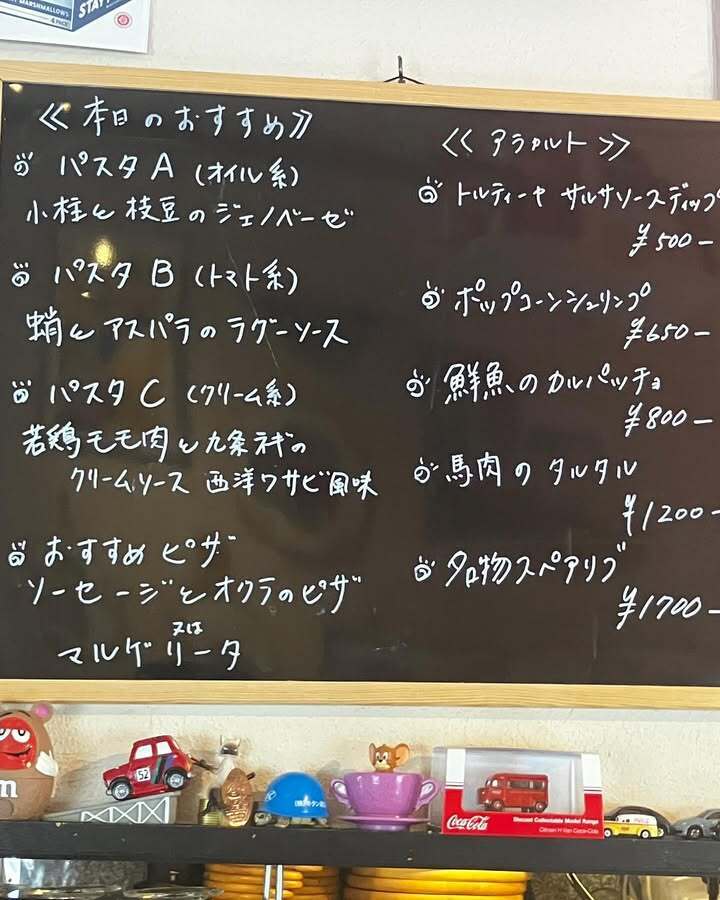 MARSHMALLOWS
4 PACK
STAY
≪本日のおすすめ≫
パスタ A (オイル系)
小柱と枝豆のジェノベーゼ
パスタ B (トマト系)
蛸とアスパラのラグーソース
パスタ C (クリーム系)
若鶏モモ肉と九条ネギの
クリームソース 西洋ワサビ風味
おすすめ ピザ
ソーセージとオクラのピザ
又は
マルゲリータ
≪アラカルト≫
トルティーヤ サルサソースディップ
¥500-
ポップコーンシュリンプ
¥650-
鮮魚のカルパッチョ
¥800-
馬肉のタルタル
¥1200-
名物スペアリブ
¥1700-
m
52
Coca-Cola
Diecast Collectable Model Range
Citroën H Van Coca-Cola